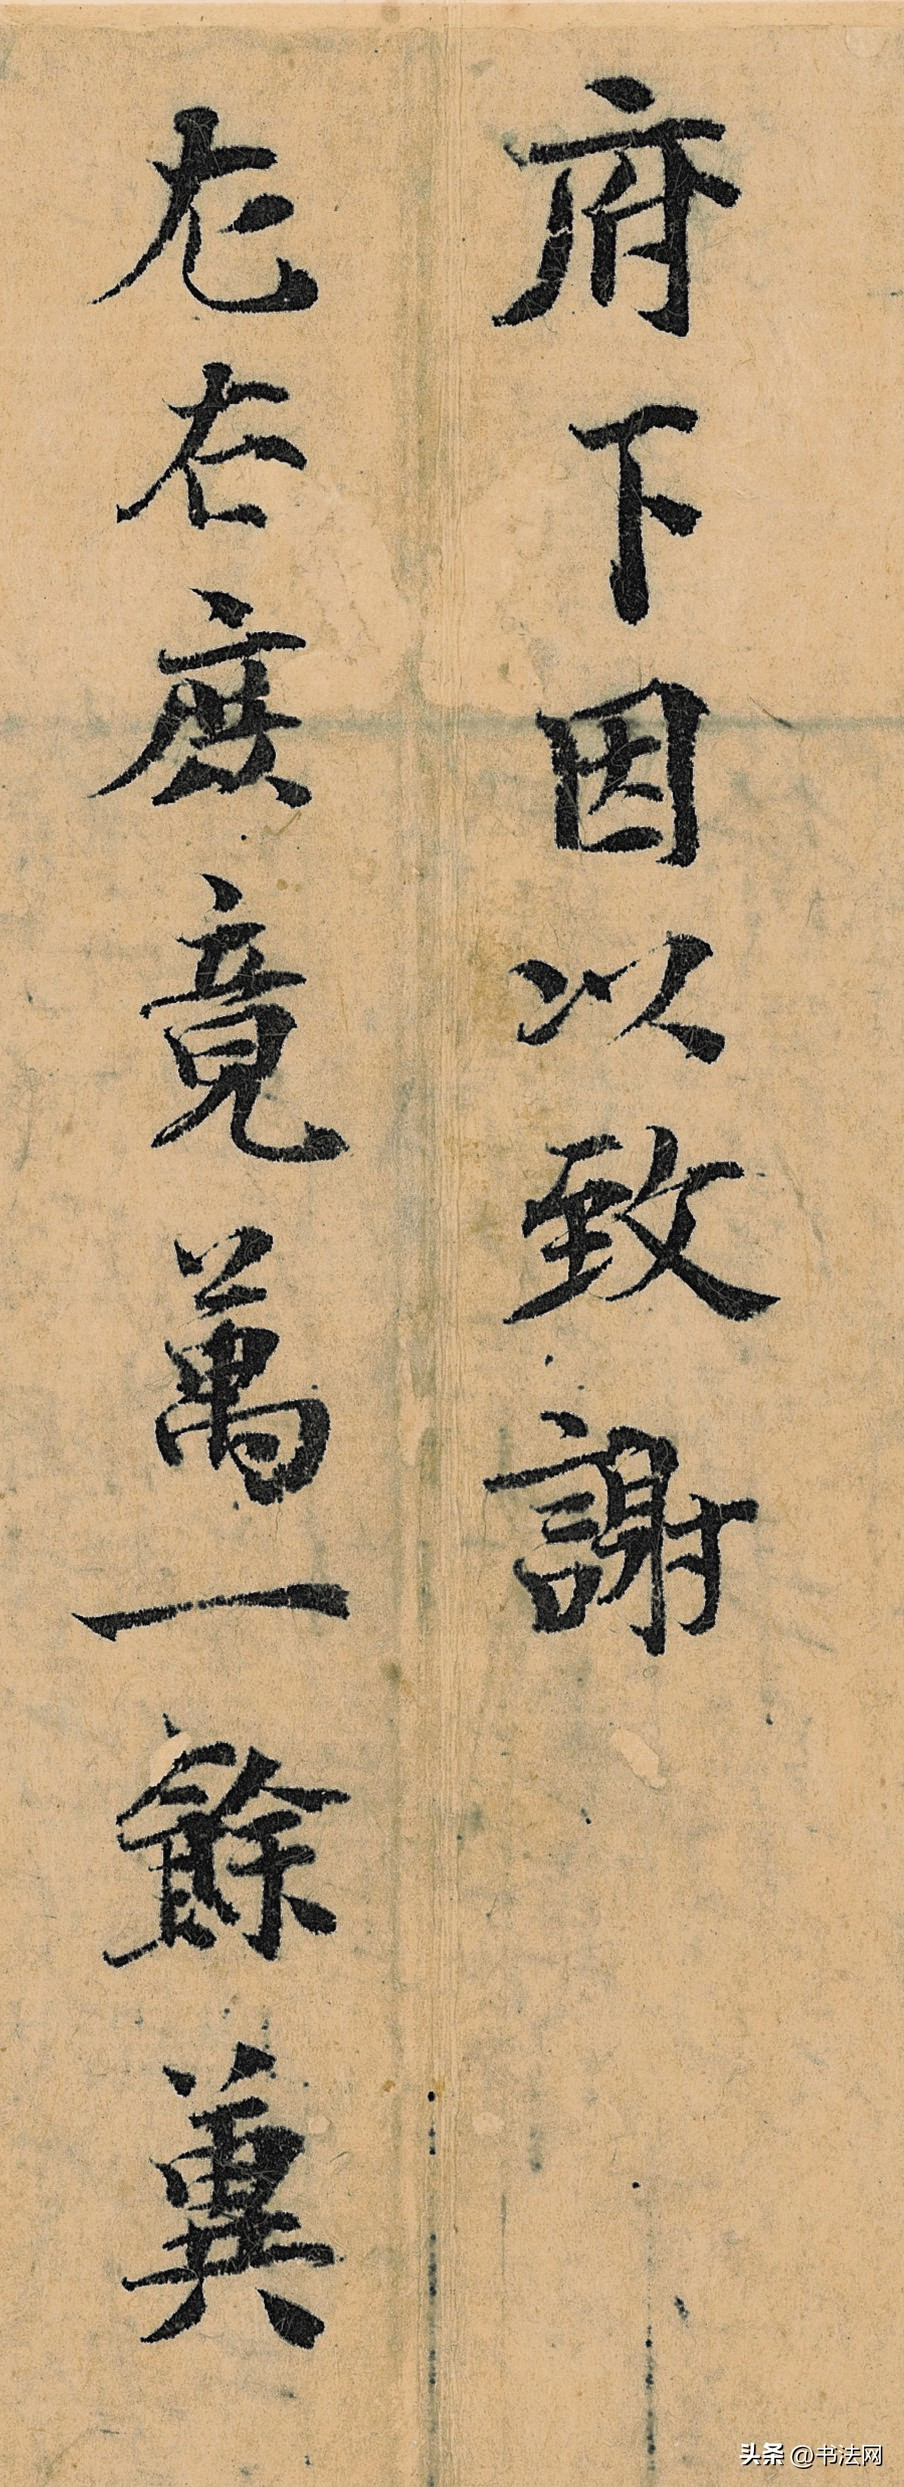 府下因以致謝
左右庶竟萬一餘兾
头条 @书法网